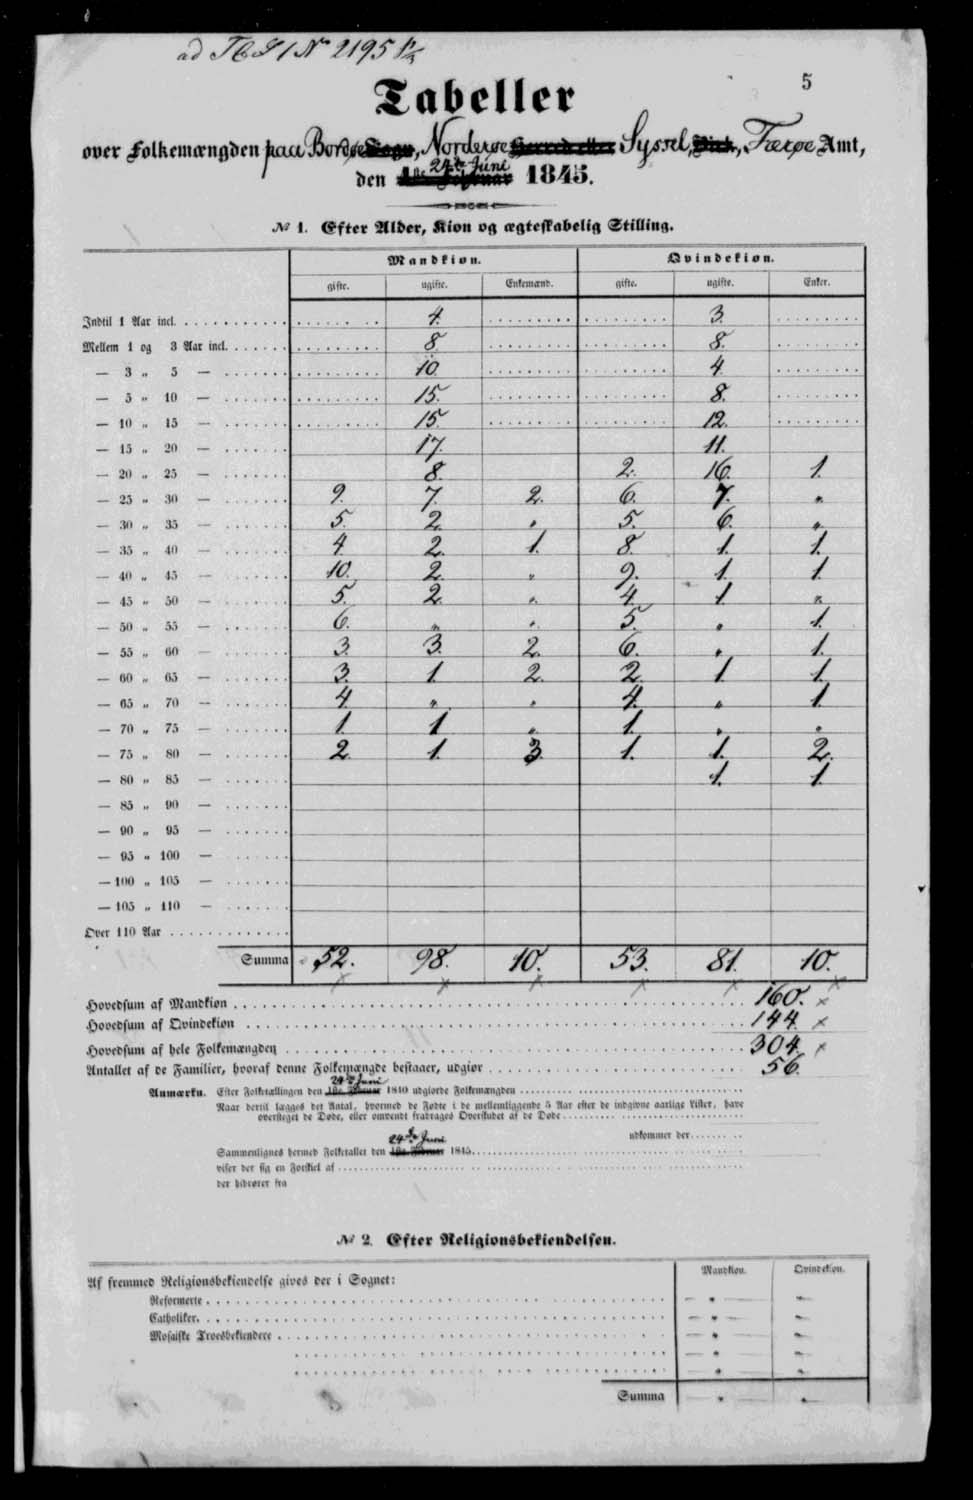 ad
Nr 2195
5
Tabeller
over Folkemængden paa Bordøe Sogn, Norderøe Herred eller Syssel, Birk, Færøe Amt,
den 1ste Februar 24de Juni 1845.
№ 1. Efter Alder, Kiøn og ægteskabelig Stilling.
Mandkiøn. Qvindekiøn.
gifte. ugifte. Enkemænd. gifte. ugifte. Enker.
Indtil 1 Aar incl. 4. 3.
Mellem 1 og 3 Aar incl. 8. 8.
— 3 „ 5 — 10. 4.
— 5 „ 10 — 15. 8.
— 10 „ 15 — 15. 12.
— 15 „ 20 — 17. 11.
— 20 „ 25 — 8. 2. 16. 1.
— 25 „ 30 — 9. 7. 2. 6. 7. „
— 30 „ 35 — 5. 2. „ 5. 6. „
— 35 „ 40 — 4. 2. 1. 8. 1. 1.
— 40 „ 45 — 10. 2. „ 9. 1. 1.
— 45 „ 50 — 5. 2. „ 4. 1. „
— 50 „ 55 — 6. „ „ 5. „ 1.
— 55 „ 60 — 3. 3. 2. 6. „ 1.
— 60 „ 65 — 3. 1. 2. 2. 1. 1.
— 65 „ 70 — 4. „ „ 4. „ 1.
— 70 „ 75 — 1. 1. „ 1. „ „
— 75 „ 80 — 2. 1. 3. 1. 1. 2.
— 80 „ 85 — 1. 1.
— 85 „ 90 —
— 90 „ 95 —
— 95 „ 100 —
— 100 „ 105 —
— 105 „ 110 —
Over 110 Aar
Summa 52. 98. 10. 53. 81. 10.
Hovedsum af Mandkiøn 160.
Hovedsum af Qvindekiøn 144.
Hovedsum af hele Folkemængden 304.
Antallet af de Familier, hvoraf denne Folkemængde bestaaer, udgiør 56.
Anmærkn. Efter Folketællingen den 1ste Februar 24de Juni 1840 udgiorde Folkemængden
Naar dertil lægges det Antal, hvormed de Fødte i de mellemliggende 5 Aar efter de indgivne aarlige Lister, have
oversteget de Døde, eller omvendt fradrages Overskudet af de Døde
udkommer der
Sammenlignes hermed Folketallet den 1ste Februar 24de Juni 1845
viser der sig en Forskiel af
der hidrører fra
№ 2. Efter Religionsbekiendelsen.
Mandkiøn. Qvindekiøn.
Af fremmed Religionsbekiendelse gives der i Sognet:
Reformerte — „ — „
Catholiker — „ — „
Mosaiske Troesbekiendere — „ — „
— „ — „
— „ — „
Summa — „ — „